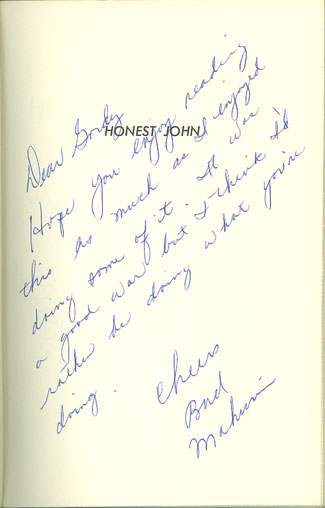 HONEST JOHN
Dear Gordy
Hope you enjoy reading
this as much as I enjoyed
doing some of it. It was
a good war but I think I'd
rather be doing what you're
doing.
Cheers
Bud
Mahurin